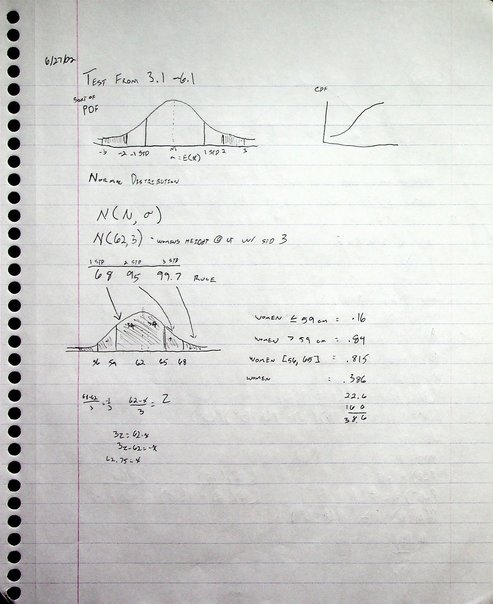 6/27/02
TEST FROM 3.1 - 6.1
SORT OF
PDF
CDF
-3 -2 -1 STD M 1 STD 2 3
= E(X)
NORMAL DISTRIBUTION
N(N, σ)
N(62,3) - WOMENS HEIGHT @ UT W/ STD 3
1 STD 2 STD 3 STD
68 95 99.7 RULE
56 59 62 65 68
WOMEN ≤ 59 = .16
WOMEN > 59 = .84
WOMEN [56, 65] = .815
WOMEN = .386
22.6
16.0
38.6
62-x/3 = Z
3z = 62-x
3z-62 = -x